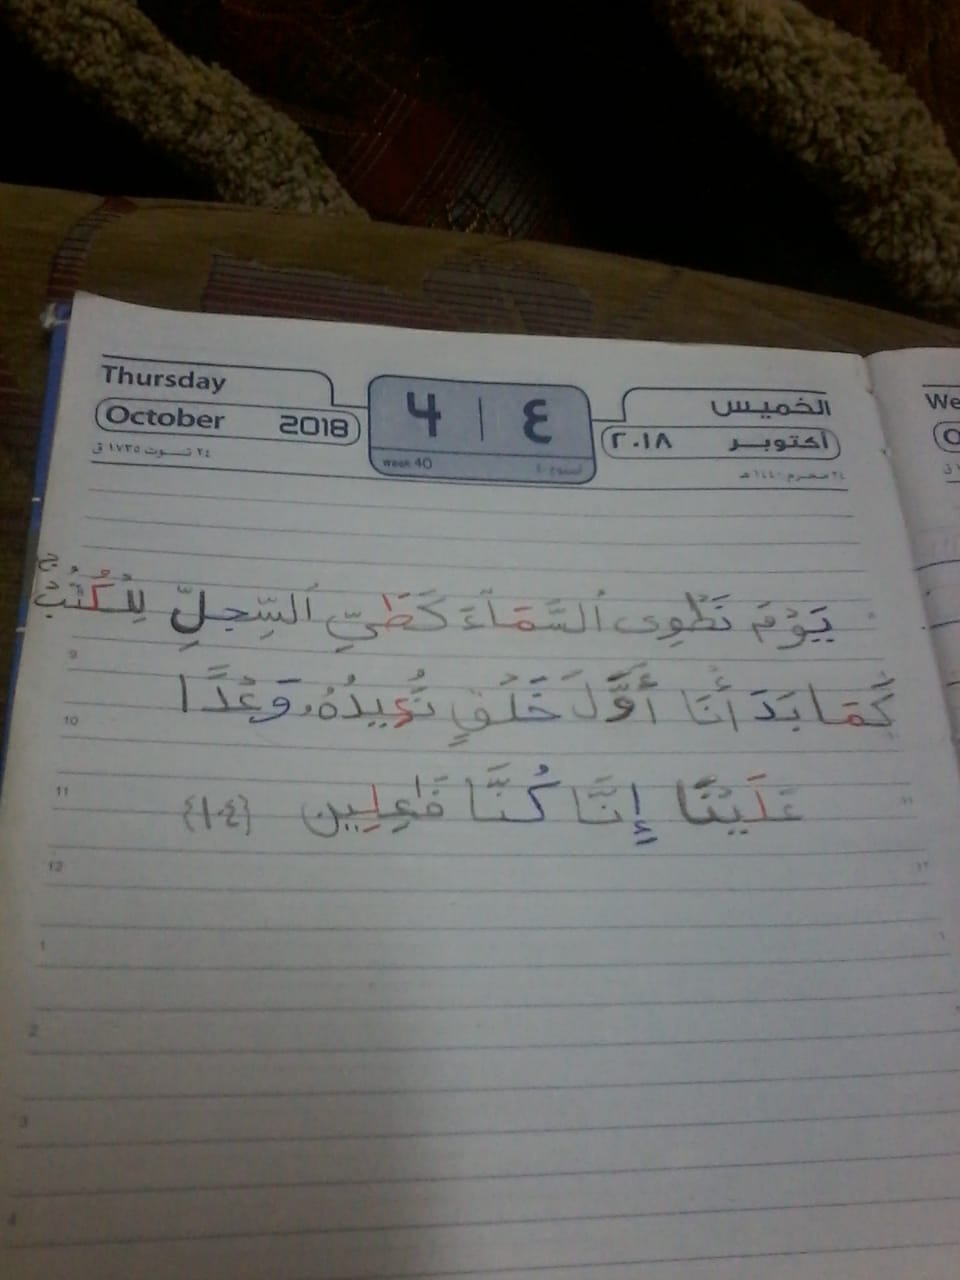 Thursday
October 2018
٢٤ تـوت ١٧٣٥ ق
4 | ٤
week 40
الخميس
أكتوبر ٢٠١٨
٢٤ محرم ١٤٤٠ هـ
We
يَوْمَ نَطْوِى ٱلسَّمَآءَ كَطَىِّ ٱلسِّجِلِّ لِلْكُتُبِ ۚ
كَمَا بَدَأْنَا أَوَّلَ خَلْقٍ نُّعِيدُهُۥ وَعْدًا
عَلَيْنَا إِنَّا كُنَّا فَاعِلِين {١٠٤}
9
10
11
12
1
2
3
4